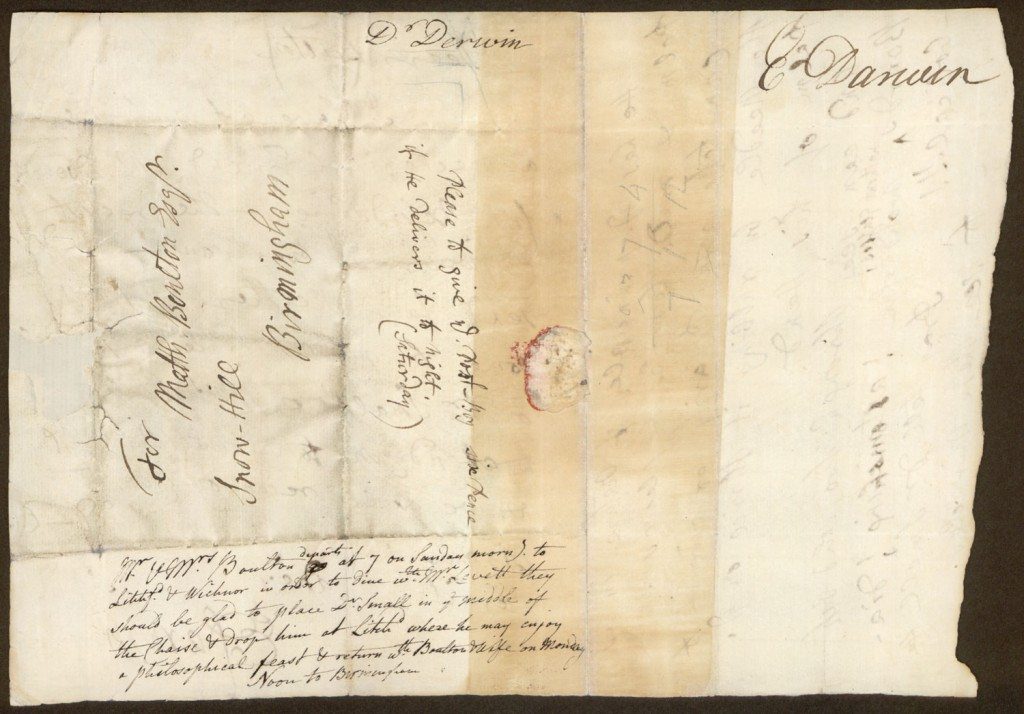 Dr Derwin
Es Darwin
For
Math. Bento​n Esqr.
Snow-Hill
Birmingham
Please to give ye Post-boy six Pence
if He delivers it to night.
(Saturday)
Mr & Mrs Boulton departs at 7 on Sunday morng. to
Litchfd & Wichnor in order to dine wth Mr Levett they
should be glad to place Dr Small in ye middle of
the Chaise & drop him at Litchd where he may enjoy
a philosophical feast & return wth Boulton & Wife on Monday
Noon to Birmingham